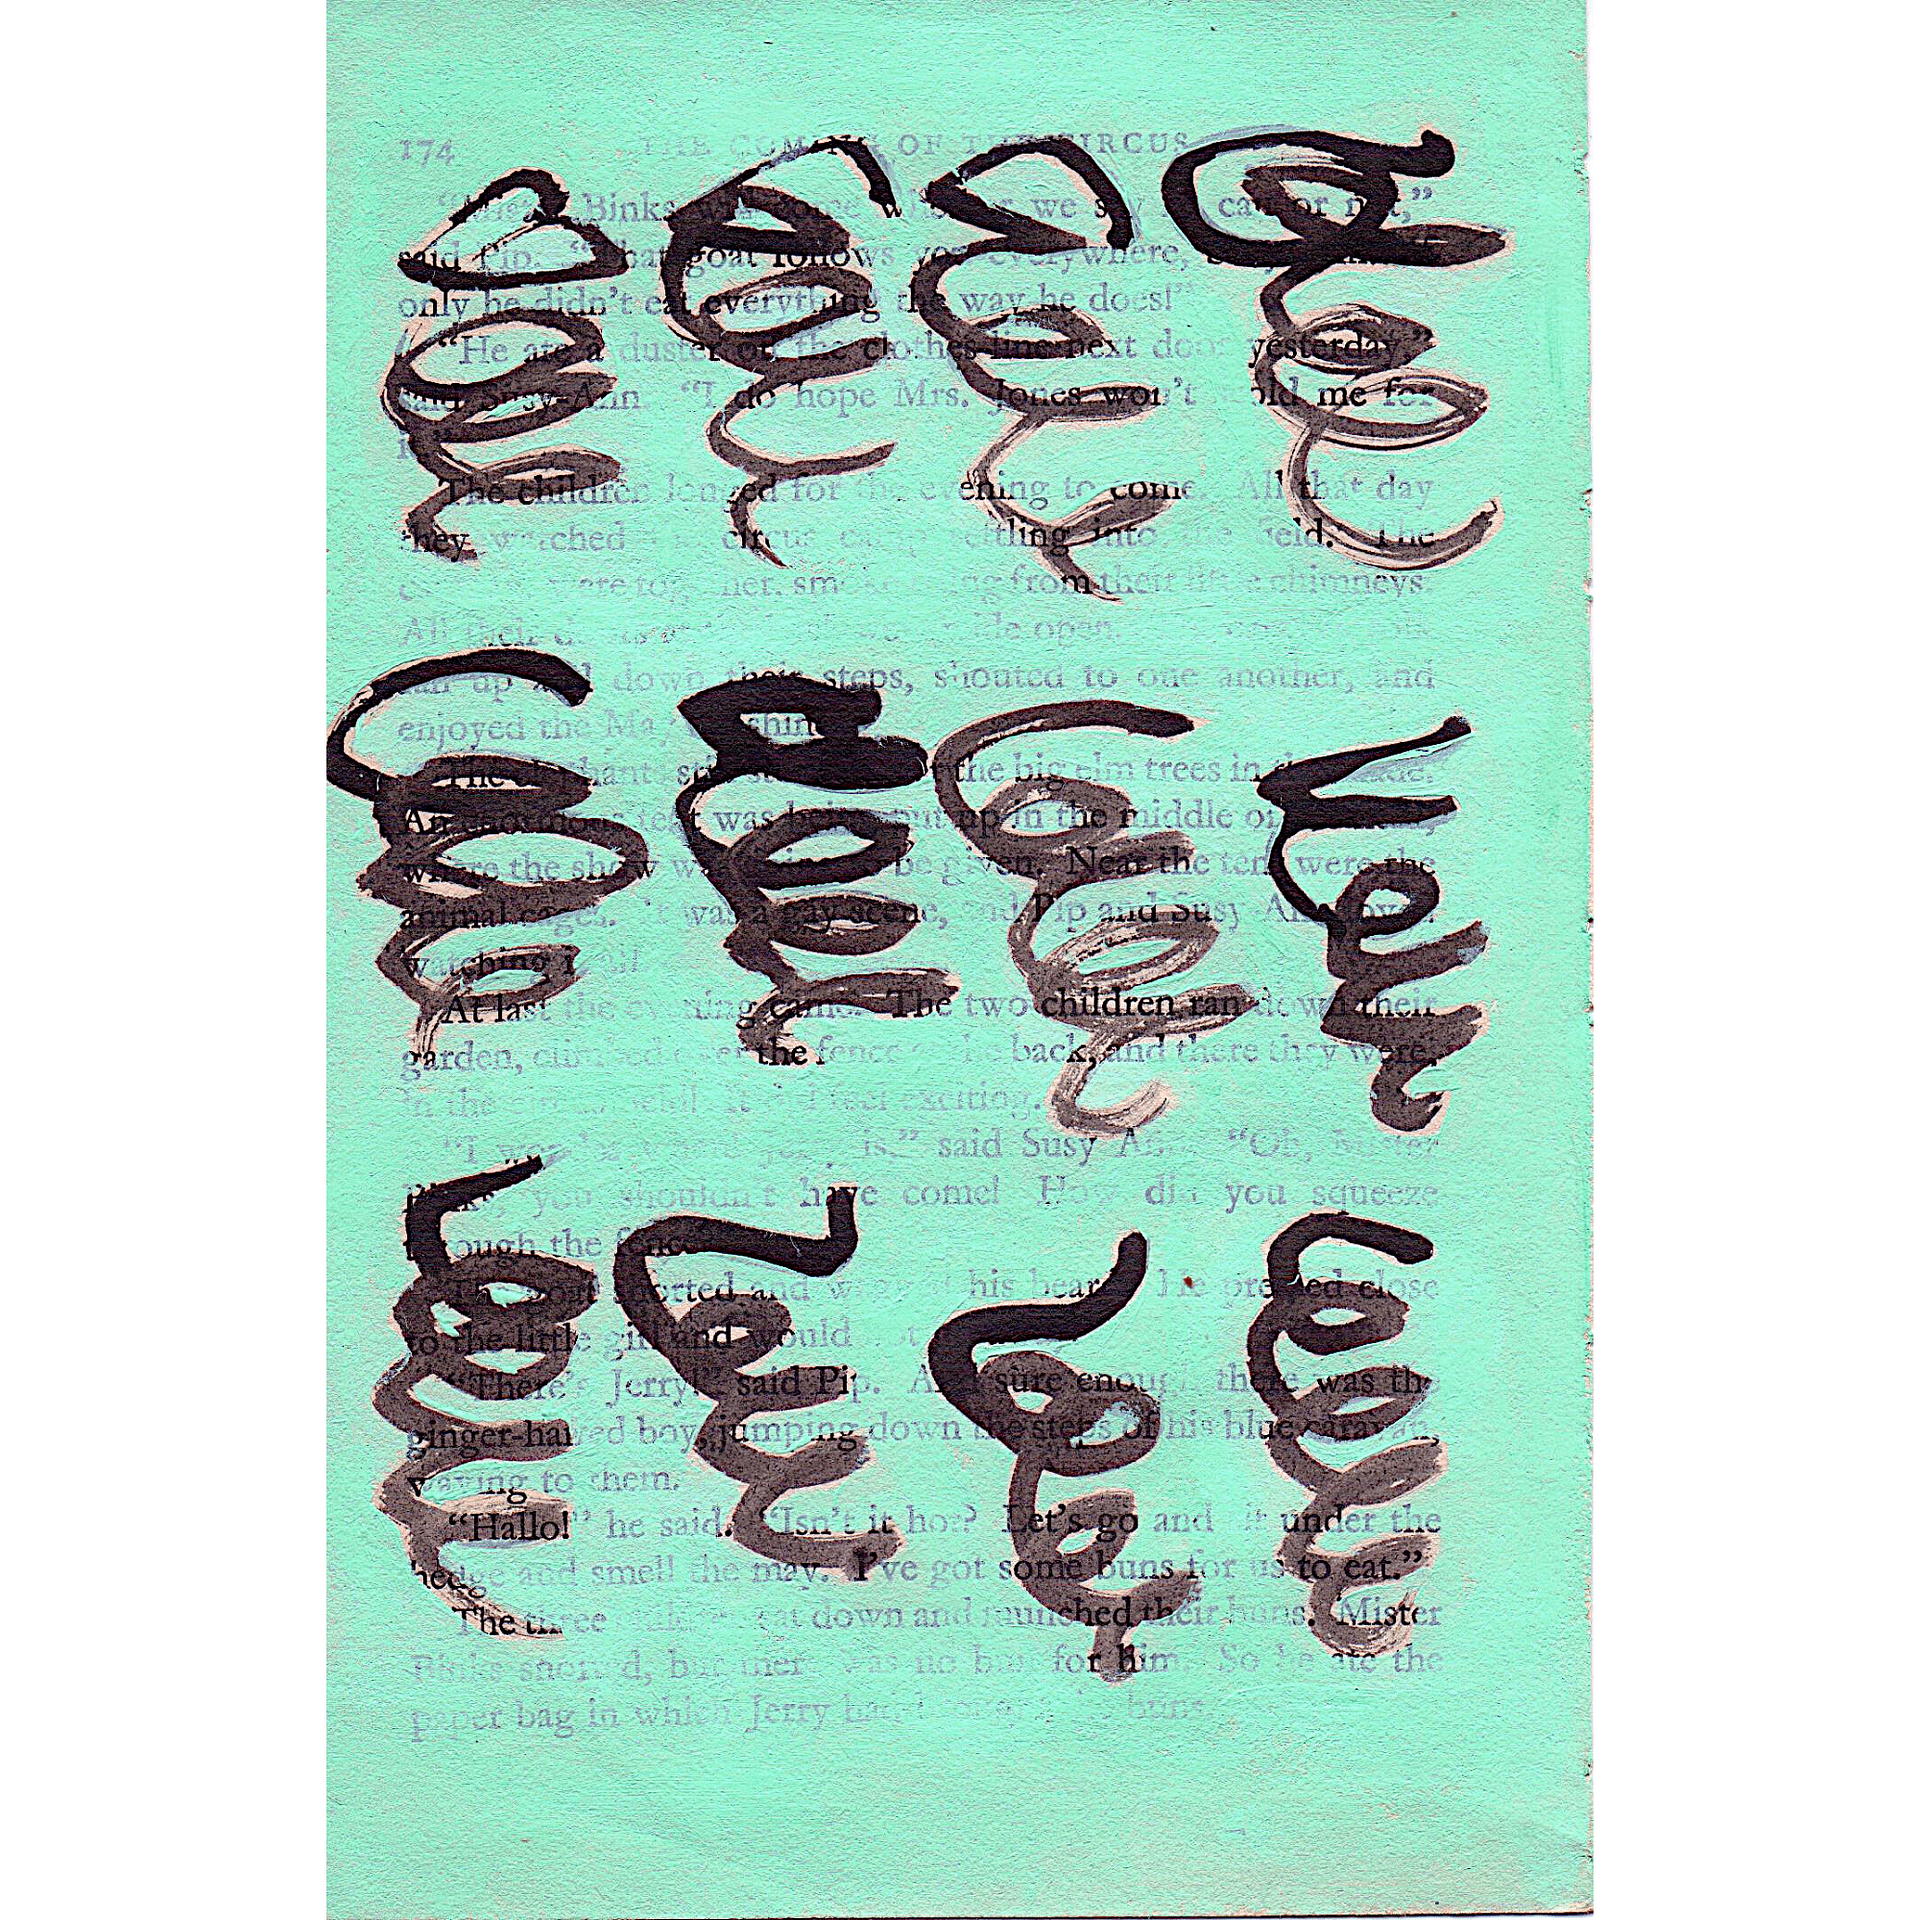 174 THE COMING OF THE CIRCUS
Binks will come we say or not,”
said Pip. “That goat follows you everywhere,
only he didn’t eat everything the way he does!”
“He ate a duster on the clothes-line next door yesterday,”
said Susy-Ann. “I do hope Mrs. Jones won’t scold me for
it.”
The children longed for the evening to come. All that day
they watched the circus camp settling into the field. The
were together, smoke rising from their little chimneys.
All their open.
ran up and down their steps, shouted to one another, and
enjoyed the May sunshine.
The elephants still the big elm trees in
An enormous tent was being put up in the middle of
where the show was going to be given. Near the tent were the
animal cages. It was a gay scene, and Pip and Susy-Ann loved
watching it all.
At last the evening came. The two children ran down their
garden, climbed over the fence at the back, and there they were,
in the circus field. It did feel exciting.
“I wonder where Jerry is,” said Susy-Ann. “Oh, Mister
Binks, you shouldn’t have come! How did you squeeze
through the fence?”
The goat snorted and his beard. He pressed close
to the little girl and would not
“There’s Jerry!” said Pip. And sure enough there was the
ginger-haired boy, jumping down the steps of his blue caravan,
waving to them.
“Hallo!” he said. “Isn’t it hot? Let’s go and sit under the
hedge and smell the may. I’ve got some buns for us to eat.”
The three children sat down and munched their buns. Mister
Binks snorted, but there was no bun for him. So he ate the
paper bag in which Jerry had brought the buns.